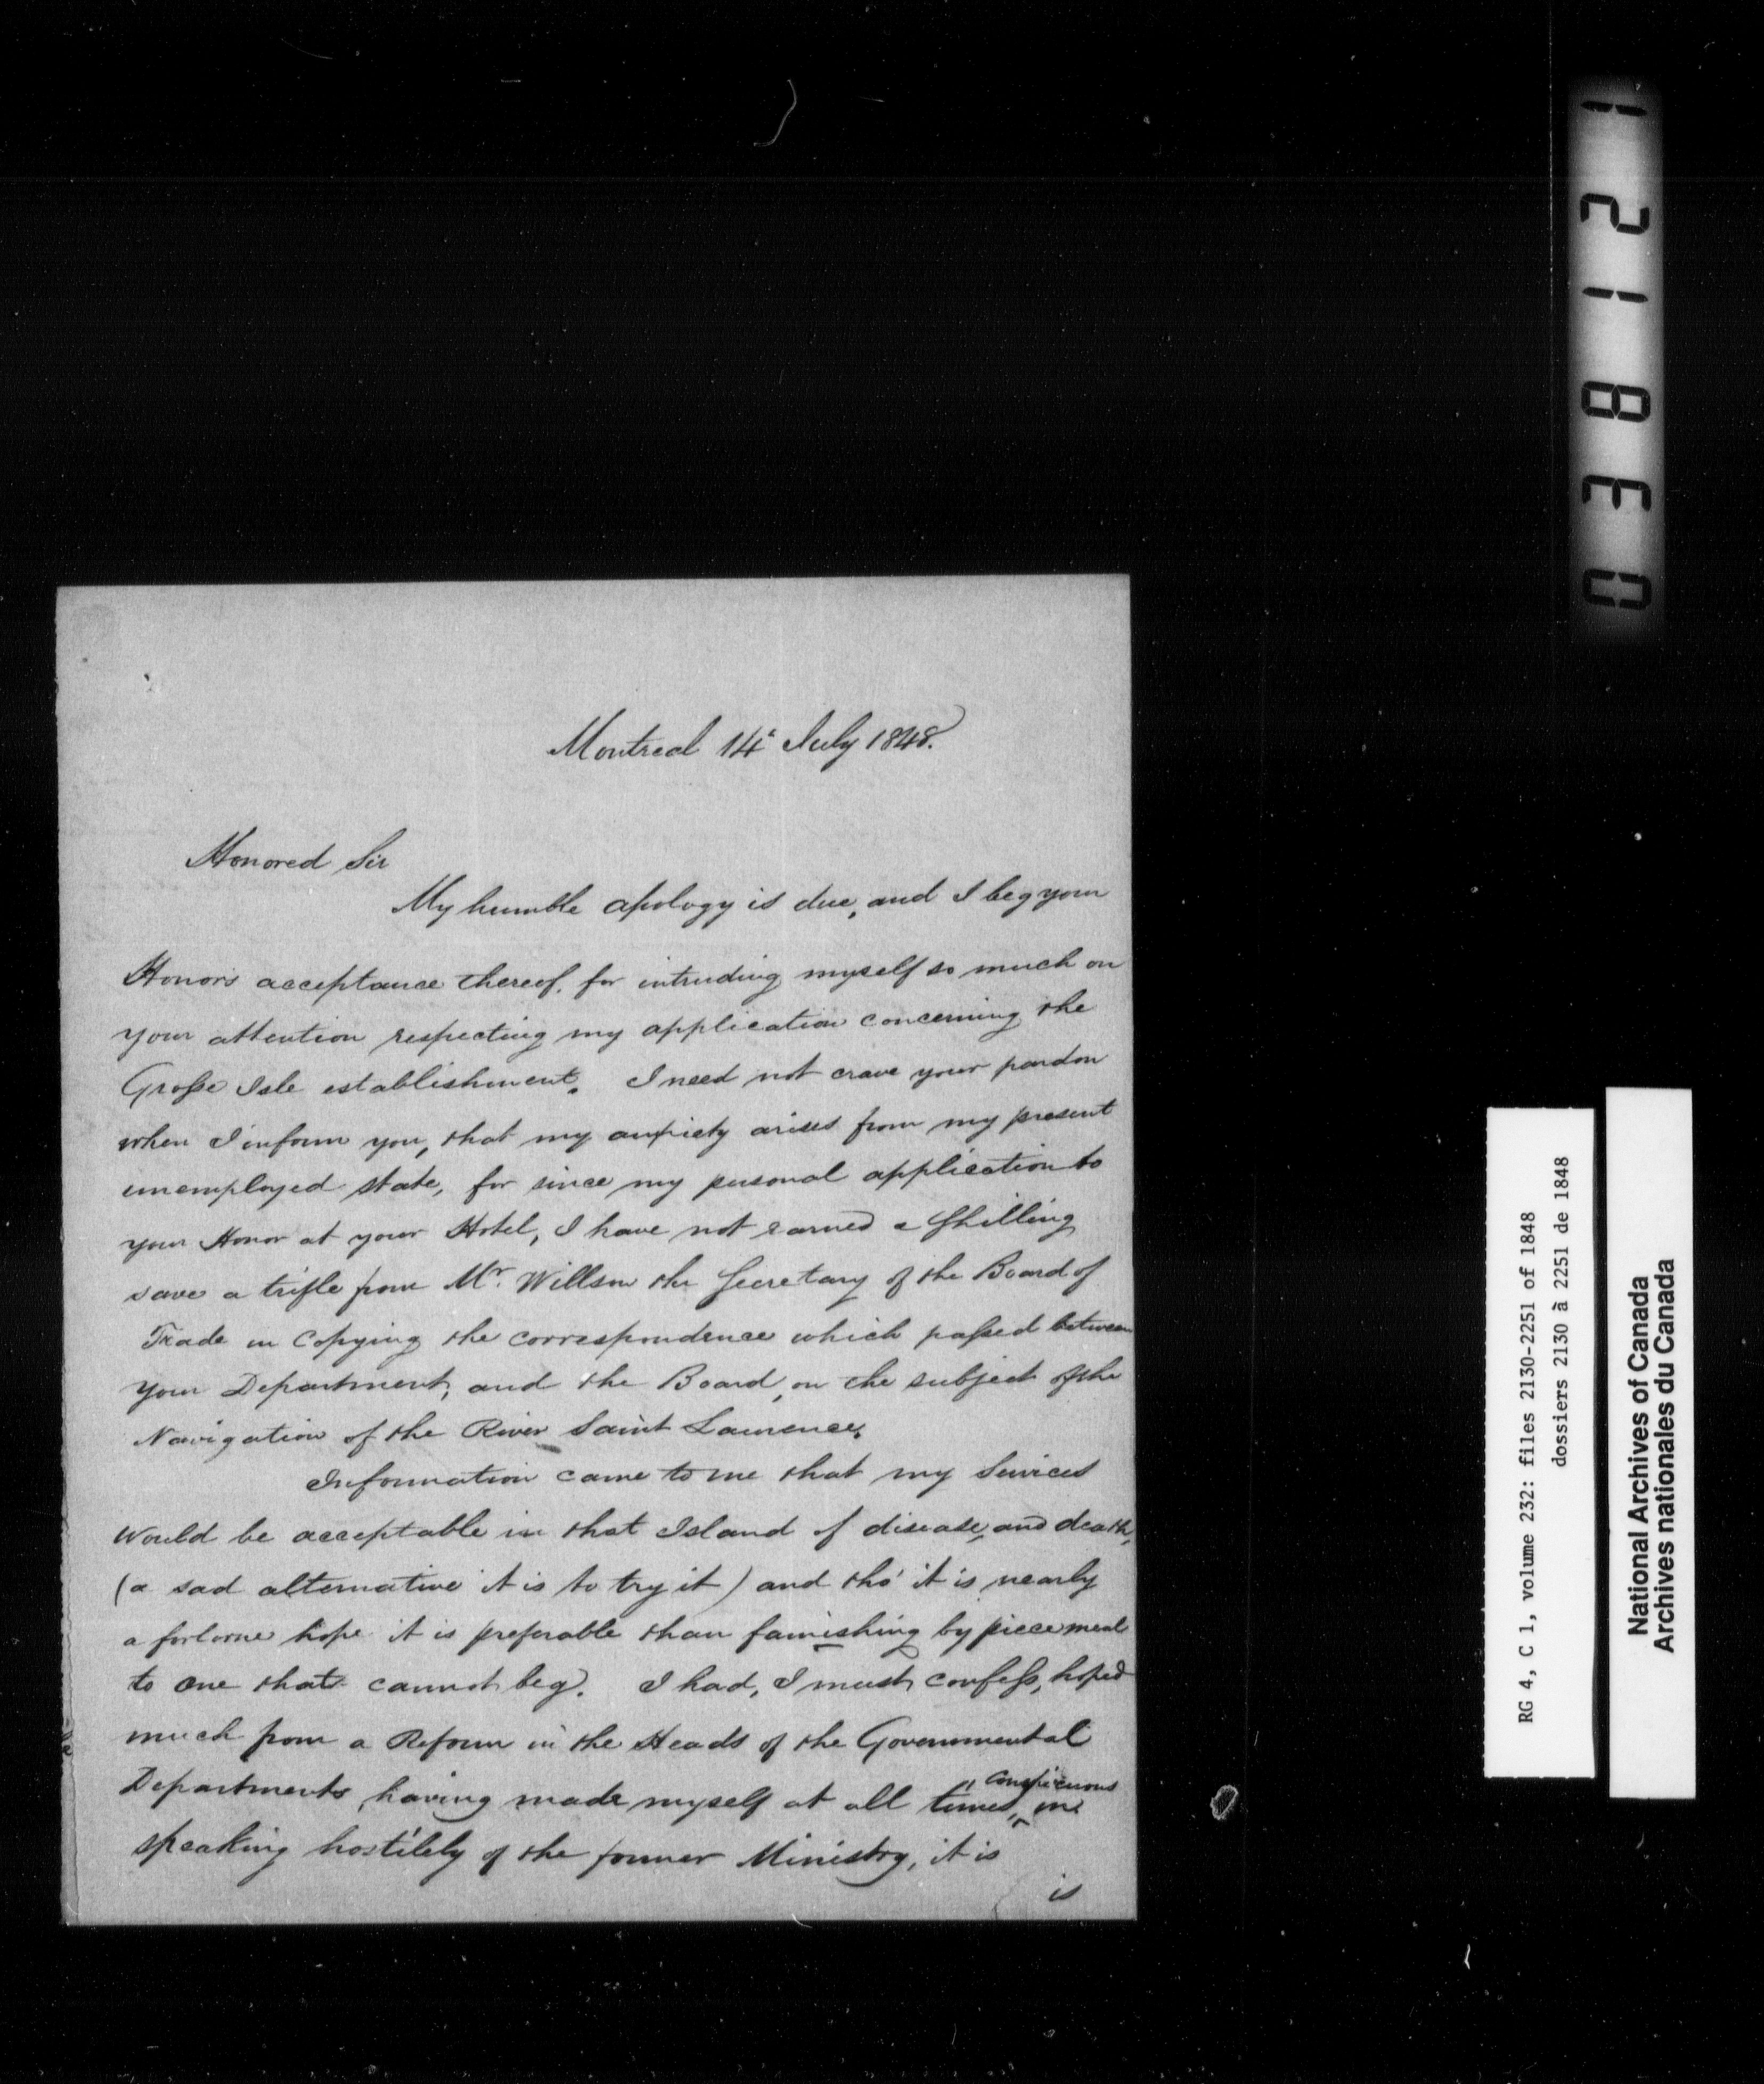 Montreal 14th July 1848.
Honored Sir
My humble apology is due, and I beg your
Honor's acceptance thereof, for intruding myself so much on
your attention respecting my application concerning the
Grosse Isle establishment. I need not crave your pardon
when I inform you, that my anxiety arises from my present
unemployed state, for since my personal application to
your Honor at your Hotel, I have not earned a Shilling
save a trifle from Mr. Willson the Secretary of the Board of
Trade in Copying the correspondence which passed between
your Department, and the Board, on the subject of the
Navigation of the River Saint Lawrence,
Information came to me that my Services
Would be acceptable in that Island of disease, and death,
(a sad alternative it is to try it) and tho' it is nearly
a forlorne hope it is preferable than famishing by piecemeal
to one that cannot beg. I had, I must, confess, hoped
much from a Reform in the Heads of the Governmental
Departments, having made myself at all times, conspicuous in
speaking hostilely of the former Ministry, it is
is
038121
RG 4, C 1, volume 232: files 2130-2251 of 1848
dossiers 2130 à 2251 de 1848
National Archives of Canada
Archives nationales du Canada